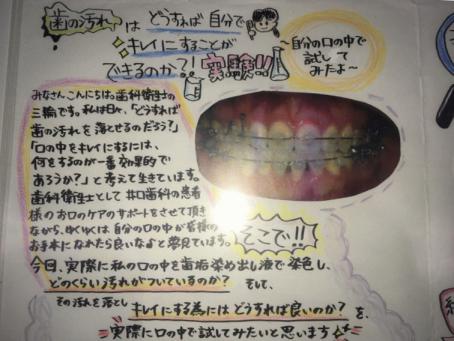 歯の汚れは どうすれば自分で
キレイにすることが
できるのか?! 実験!!
~自分の口の中で
試して
みたよ~
みなさん、こんにちは。歯科衛生士の
三輪です。私は日々、「どうすれば
歯の汚れを落とせるのだろう?」
「口の中をキレイにするには、
何をするのが一番効果的で
あろうか?」と考えて生きています。
歯科衛生士として井口歯科の患者
様のお口ケアのサポートをさせて頂き
ながら、ゆくゆくは自分の口の中が皆様の
お手本になれたら良いなぁと夢見ています。
そこで!!
今回、実際に私の口の中を歯垢染め出し液で染色し、
どのくらい汚れがついているのか? そして、
その汚れを落とし キレイにする為にはどうすれば良いのか? を、
実際に口の中で試してみたいと思います